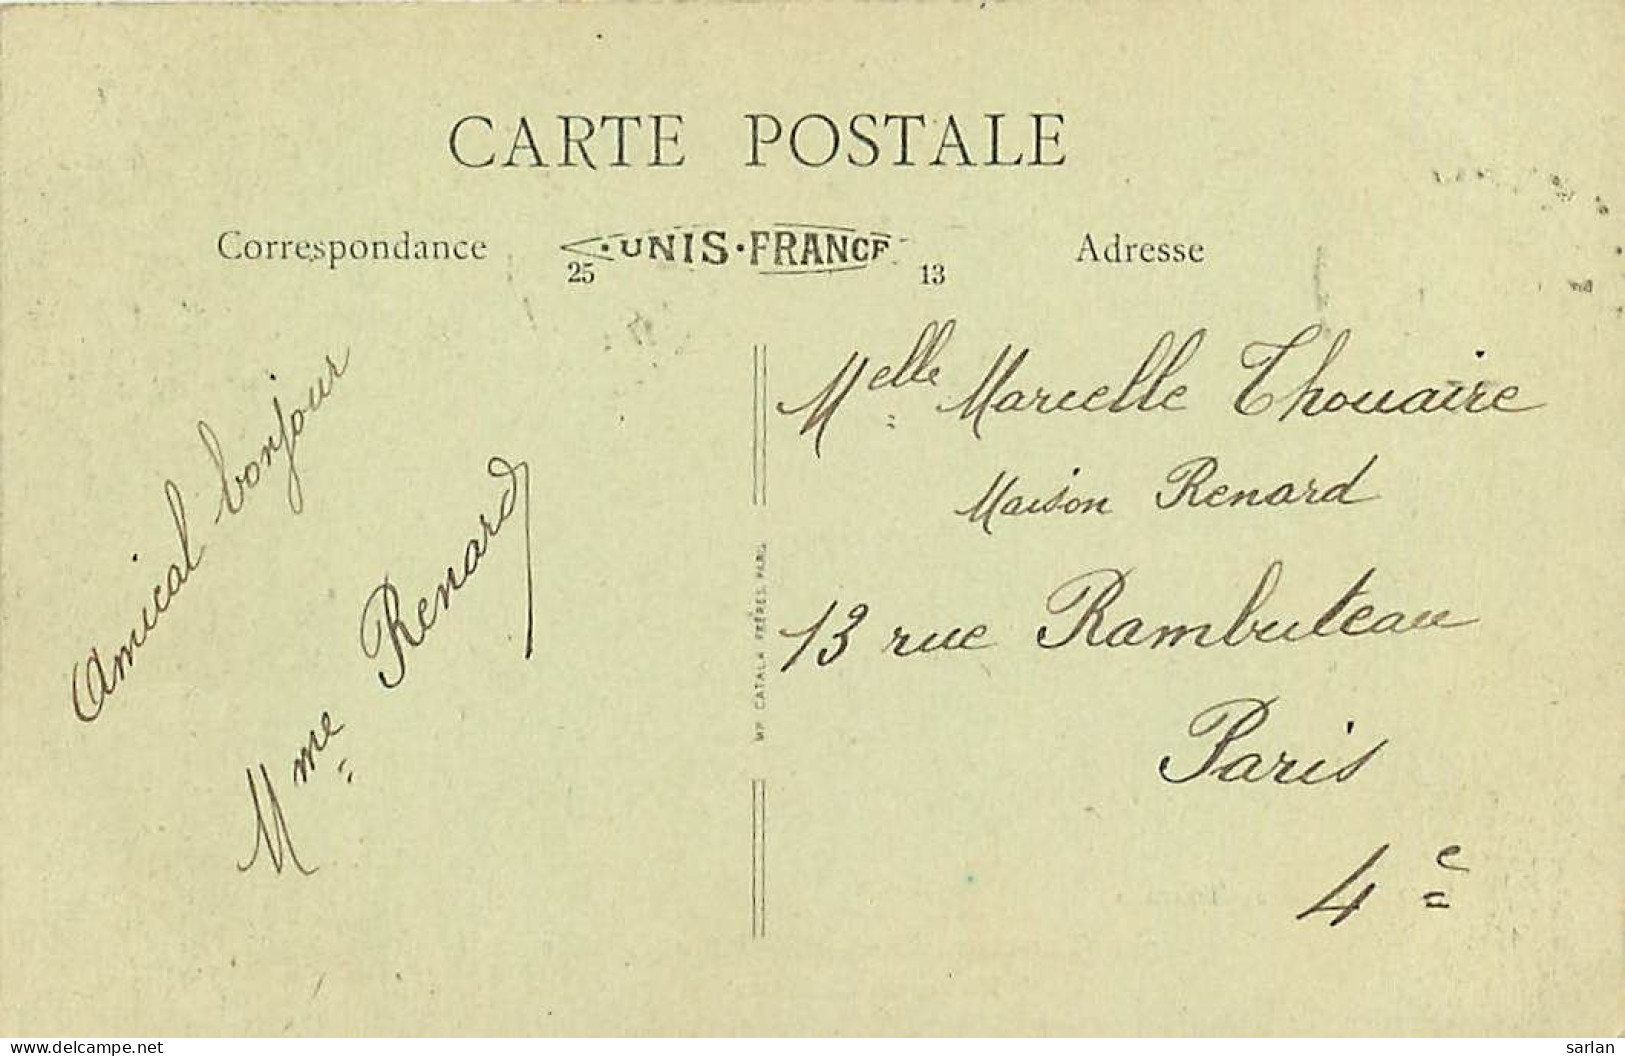 CARTE POSTALE
Correspondance
·UNIS·FRANCE
25 13
Adresse
Amical bonjour
Mme Renard
IMP. CATALA FRÈRES, PARIS
Melle Marcelle Thouaire
Maison Renard
13 rue Rambuteau
Paris
4e
www.delcampe.net
sarlan